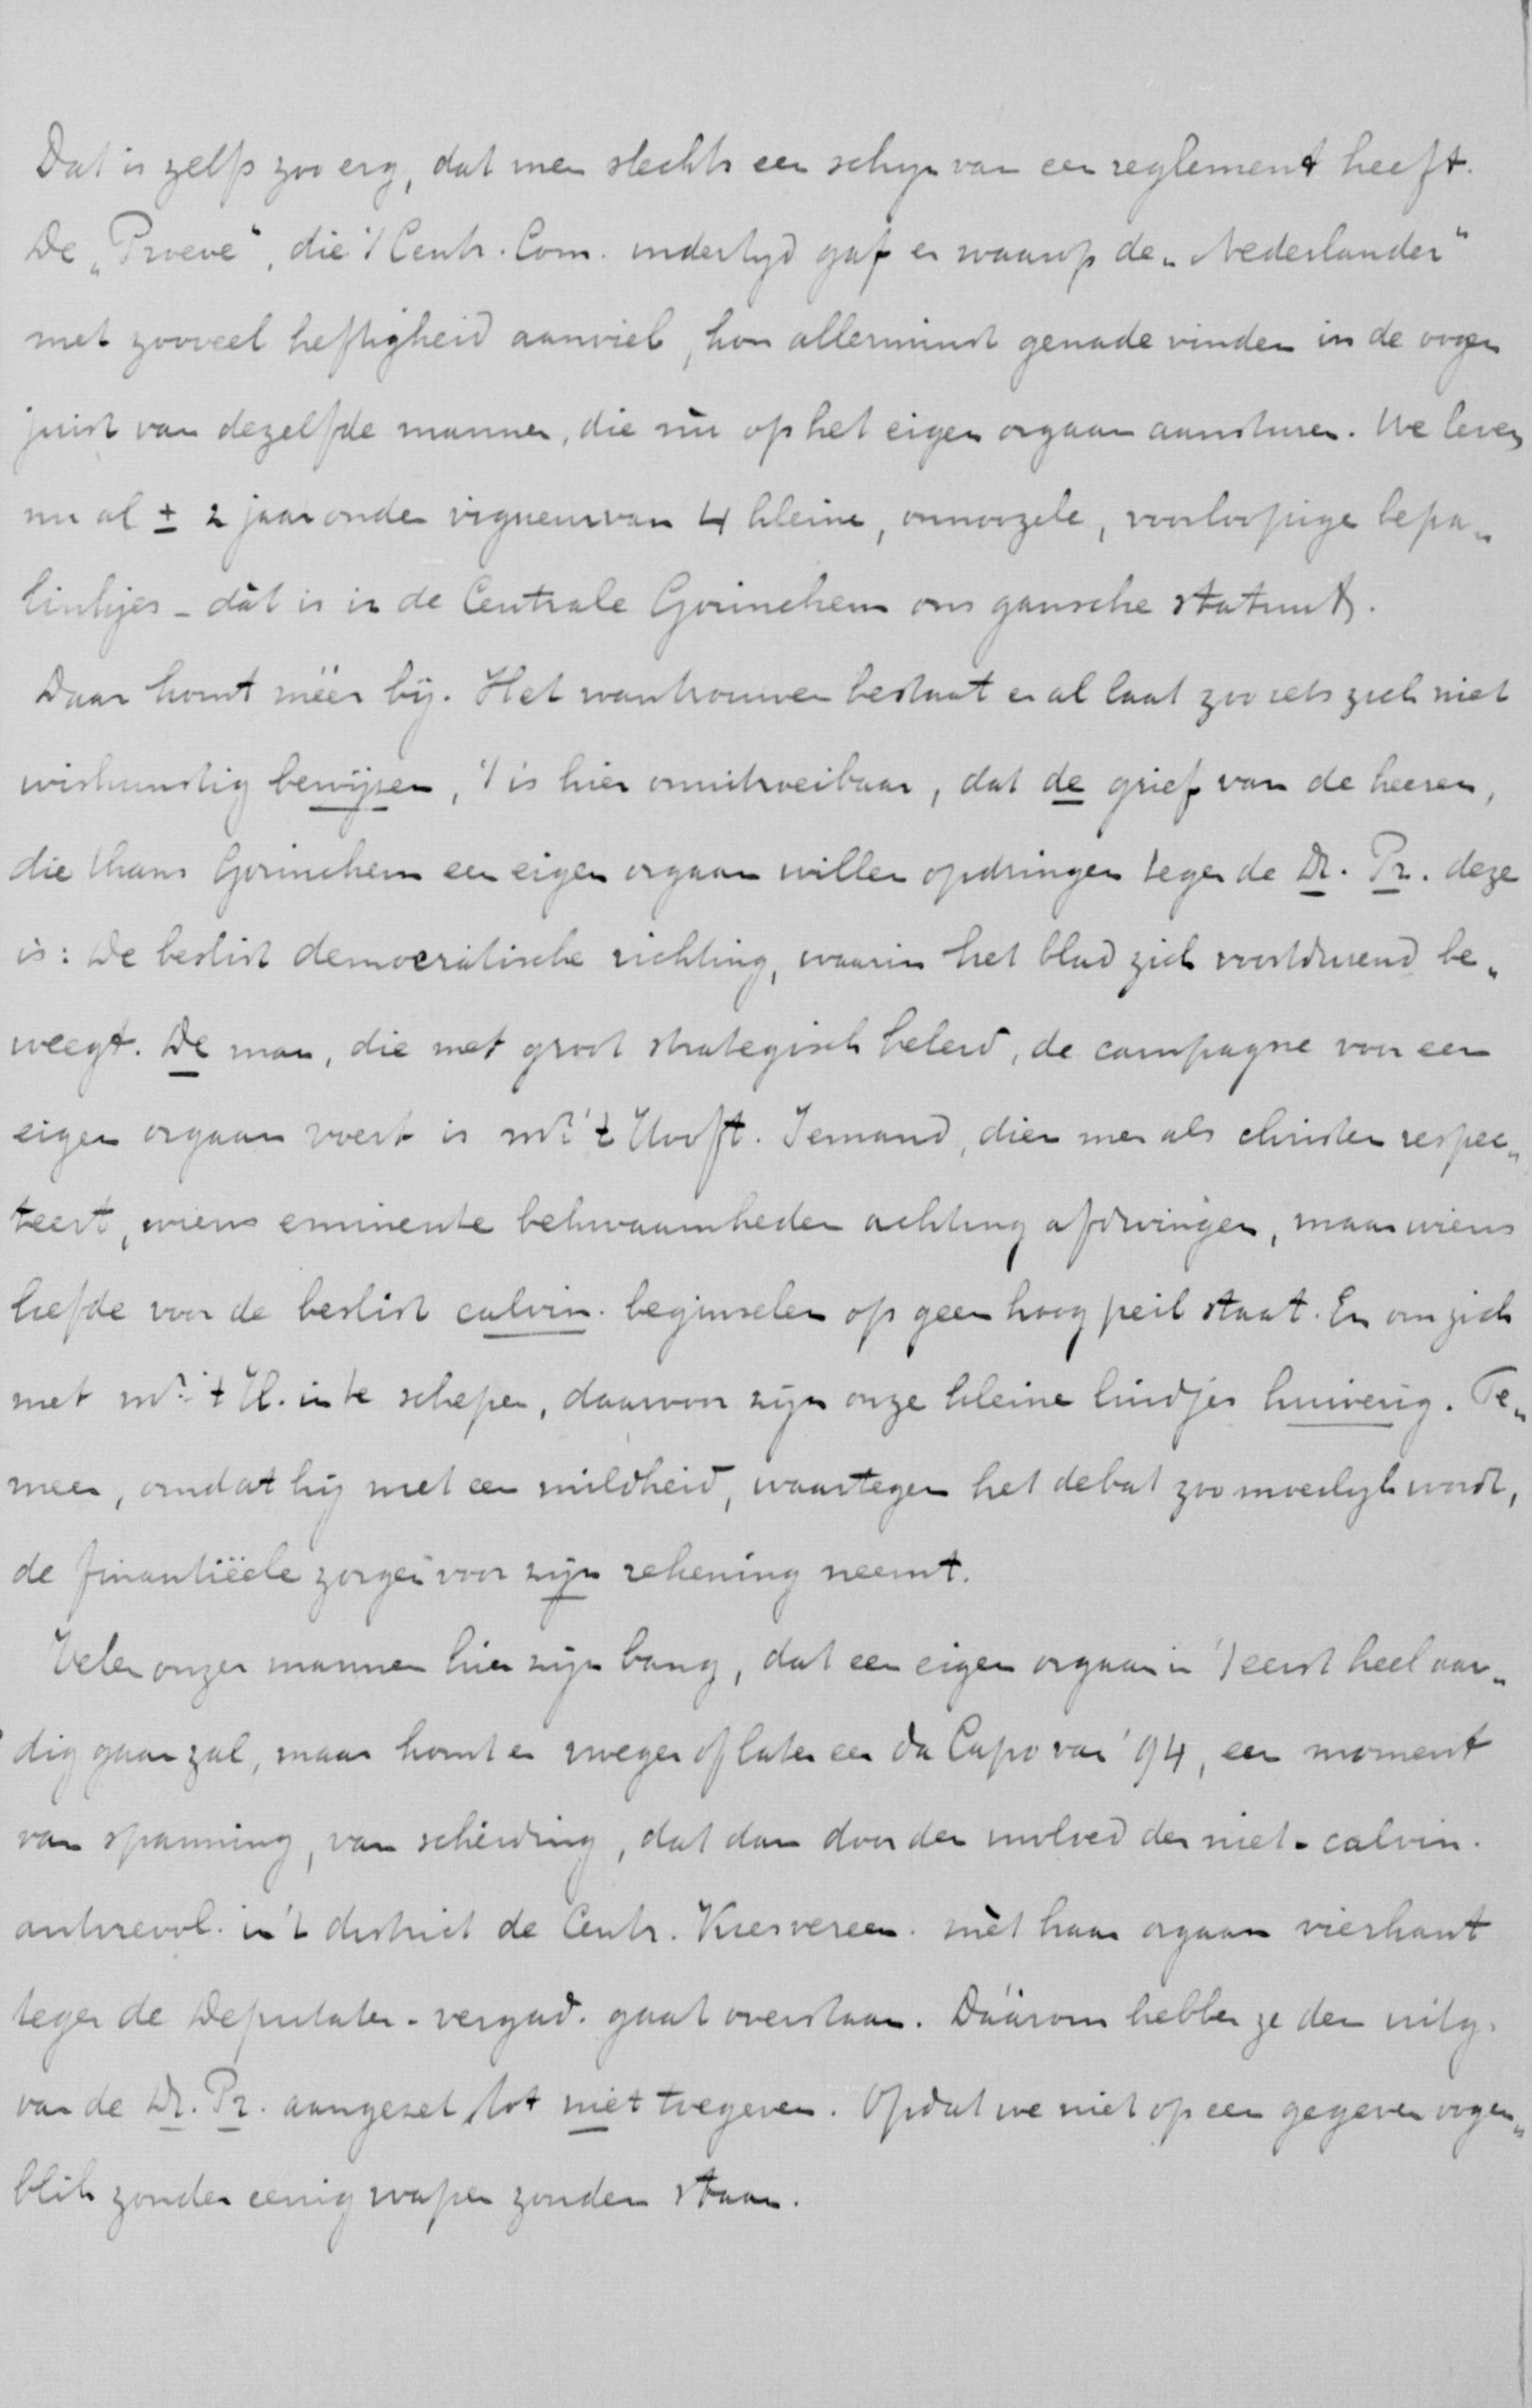 Dat is zelfs zoo erg, dat men slechts een schijn van een reglement heeft.
De „Proeve“, die 't Centr. Com. indertijd gaf en waarop de „Nederlander“
met zooveel heftigheid aanviel, kon allerminst genade vinden in de oogen
juist van dezelfde mannen, die nù op het eigen orgaan aansturen. We leven
nu al ± 2 jaar onder vigueur van 4 kleine, onnoozele, voorloopige bepa„
linkjes – dàt is in de Centrale Gorinchem ons gansche statuut.
Daar komt méér bij. Het wantrouwen bestaat en al laat zoo iets zich niet
wiskunstig bewijzen, 't is hier onuitroeibaar, dat de grief van de heeren,
die thans Gorinchem een eigen orgaan willen opdringen tegen de Dr. Pr. deze
is: De beslist democratische richting, waarin het blad zich voortdurend be„
weegt. De man, die met groot strategisch beleid, de campagne voor een
eigen orgaan voert is Mr. 't Hooft. Iemand, dien men als christen respec„
teert, wiens eminente bekwaamheden achting afdwingen, maar wiens
liefde voor de beslist calvin. beginselen op geen hoog peil staat. En om zich
met Mr. 't H. in te schepen, daarvoor zijn onze kleine luidjes huiverig. Te„
meer, omdat hij met een mildheid, waartegen het debat zoo moeilijk wordt,
de finantiëele zorgen voor zijn rekening neemt.
Velen onzer mannen hier zijn bang, dat een eigen orgaan in 't eerst heel aar„
dig gaan zal, maar komt er vroeger of later een da Capo van '94, een moment
van spanning, van scheiding, dat dan door den invloed der niet-calvin.
antirevol. in 't district de Centr. Kiesvereen. mèt haar orgaan vierkant
tegen de Deputaten-vergad. gaat overstaan. Dáárom hebben ze den uitg.
van de Dr. Pr. aangezet tot niet toegeven. Opdat we niet op een gegeven oogen„
blik zonder eenig wapen zouden staan.